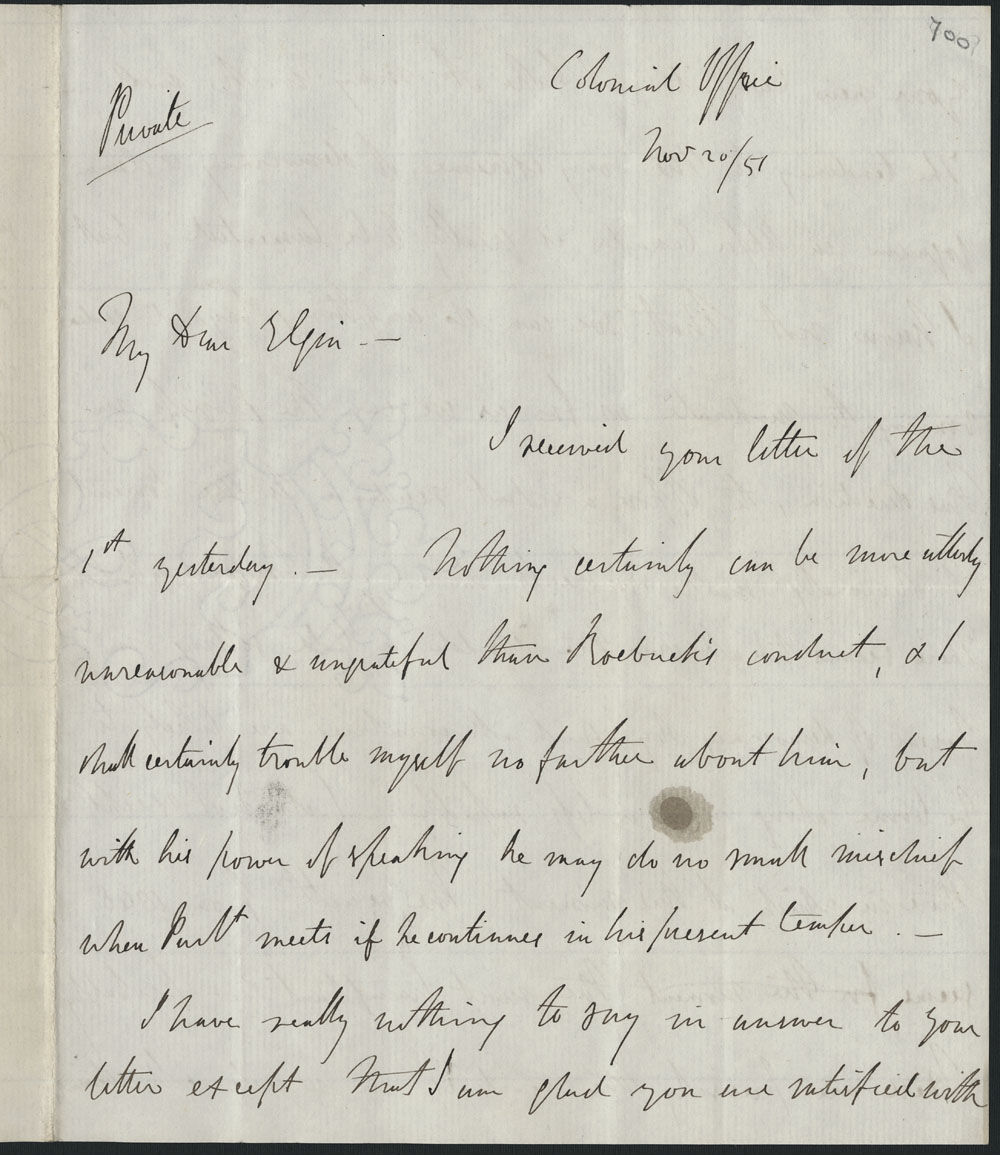 700
Colonial Office
Private
Nov 20/51
My Dear Elgin. —
I received your letter of the
1st yesterday. — Nothing certainly can be more utterly
unreasonable & ungrateful than Roebuck's conduct, & I
shall certainly trouble myself no farther about him, but
with his power of speaking he may do no small mischief
when Parlt meets if he continues in his present temper. —
I have really nothing to say in answer to your
letter except that I am glad you are satisfied with